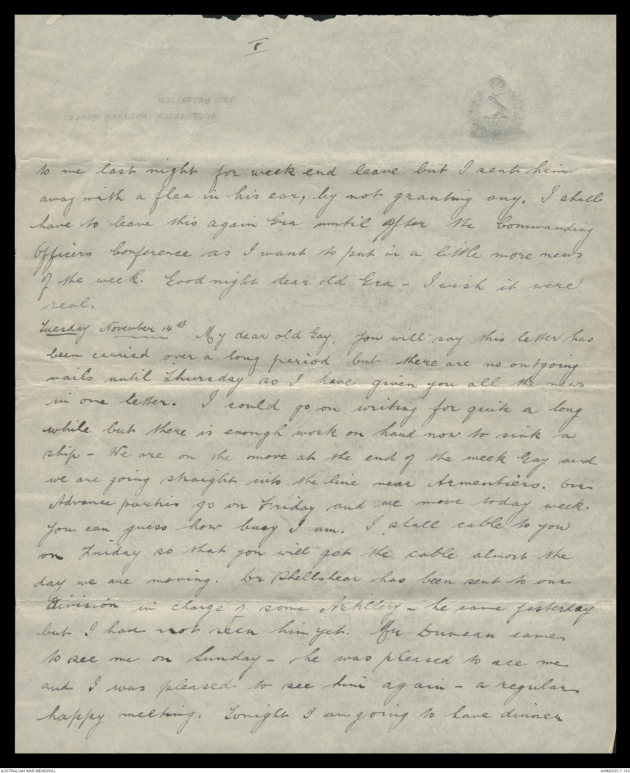 8
to me last night for week end leave but I sent him
away with a flea in his ear, by not granting any. I shall
have to leave this again Gra until after the Commanding
Officers Conference as I want to put in a little more news
of the week. Good night dear old Gra - I wish it were
real.
Tuesday November 14th My dear old Gay, you will say this letter has
been carried over a long period but there are no outgoing
mails until Thursday so I have given you all the news
in one letter. I could go on writing for quite a long
while but there is enough work on hand now to sink a
ship - We are on the move at the end of the week Gay and
we are going straight into the line near Armentiers. Our
Advance parties go on Friday and we move today week.
You can guess how busy I am. I shall cable to you
on Friday so that you will get the cable almost the
day we are moving. Dr Shellshear has been sent to our
Division in charge of some Artillery - he came yesterday
but I had not seen him yet. Mr Duncan came
to see me on Sunday - he was pleased to see me
and I was pleased to see him again - a regular
happy meeting. Tonight I am going to have dinner
AUSTRALIAN WAR MEMORIAL